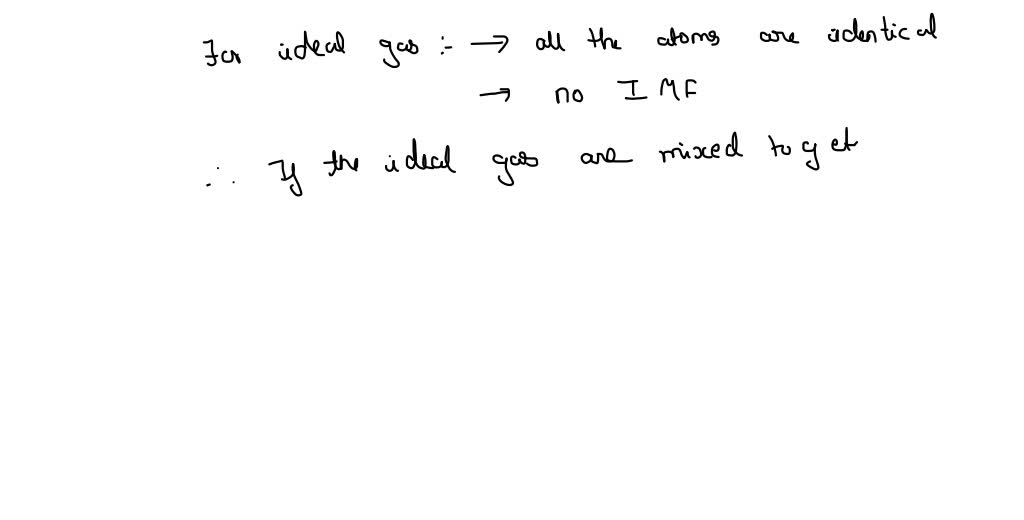 For ideal gas :- → all the atoms are identical
→ no IMF
∴ If the ideal gas are mixed toget